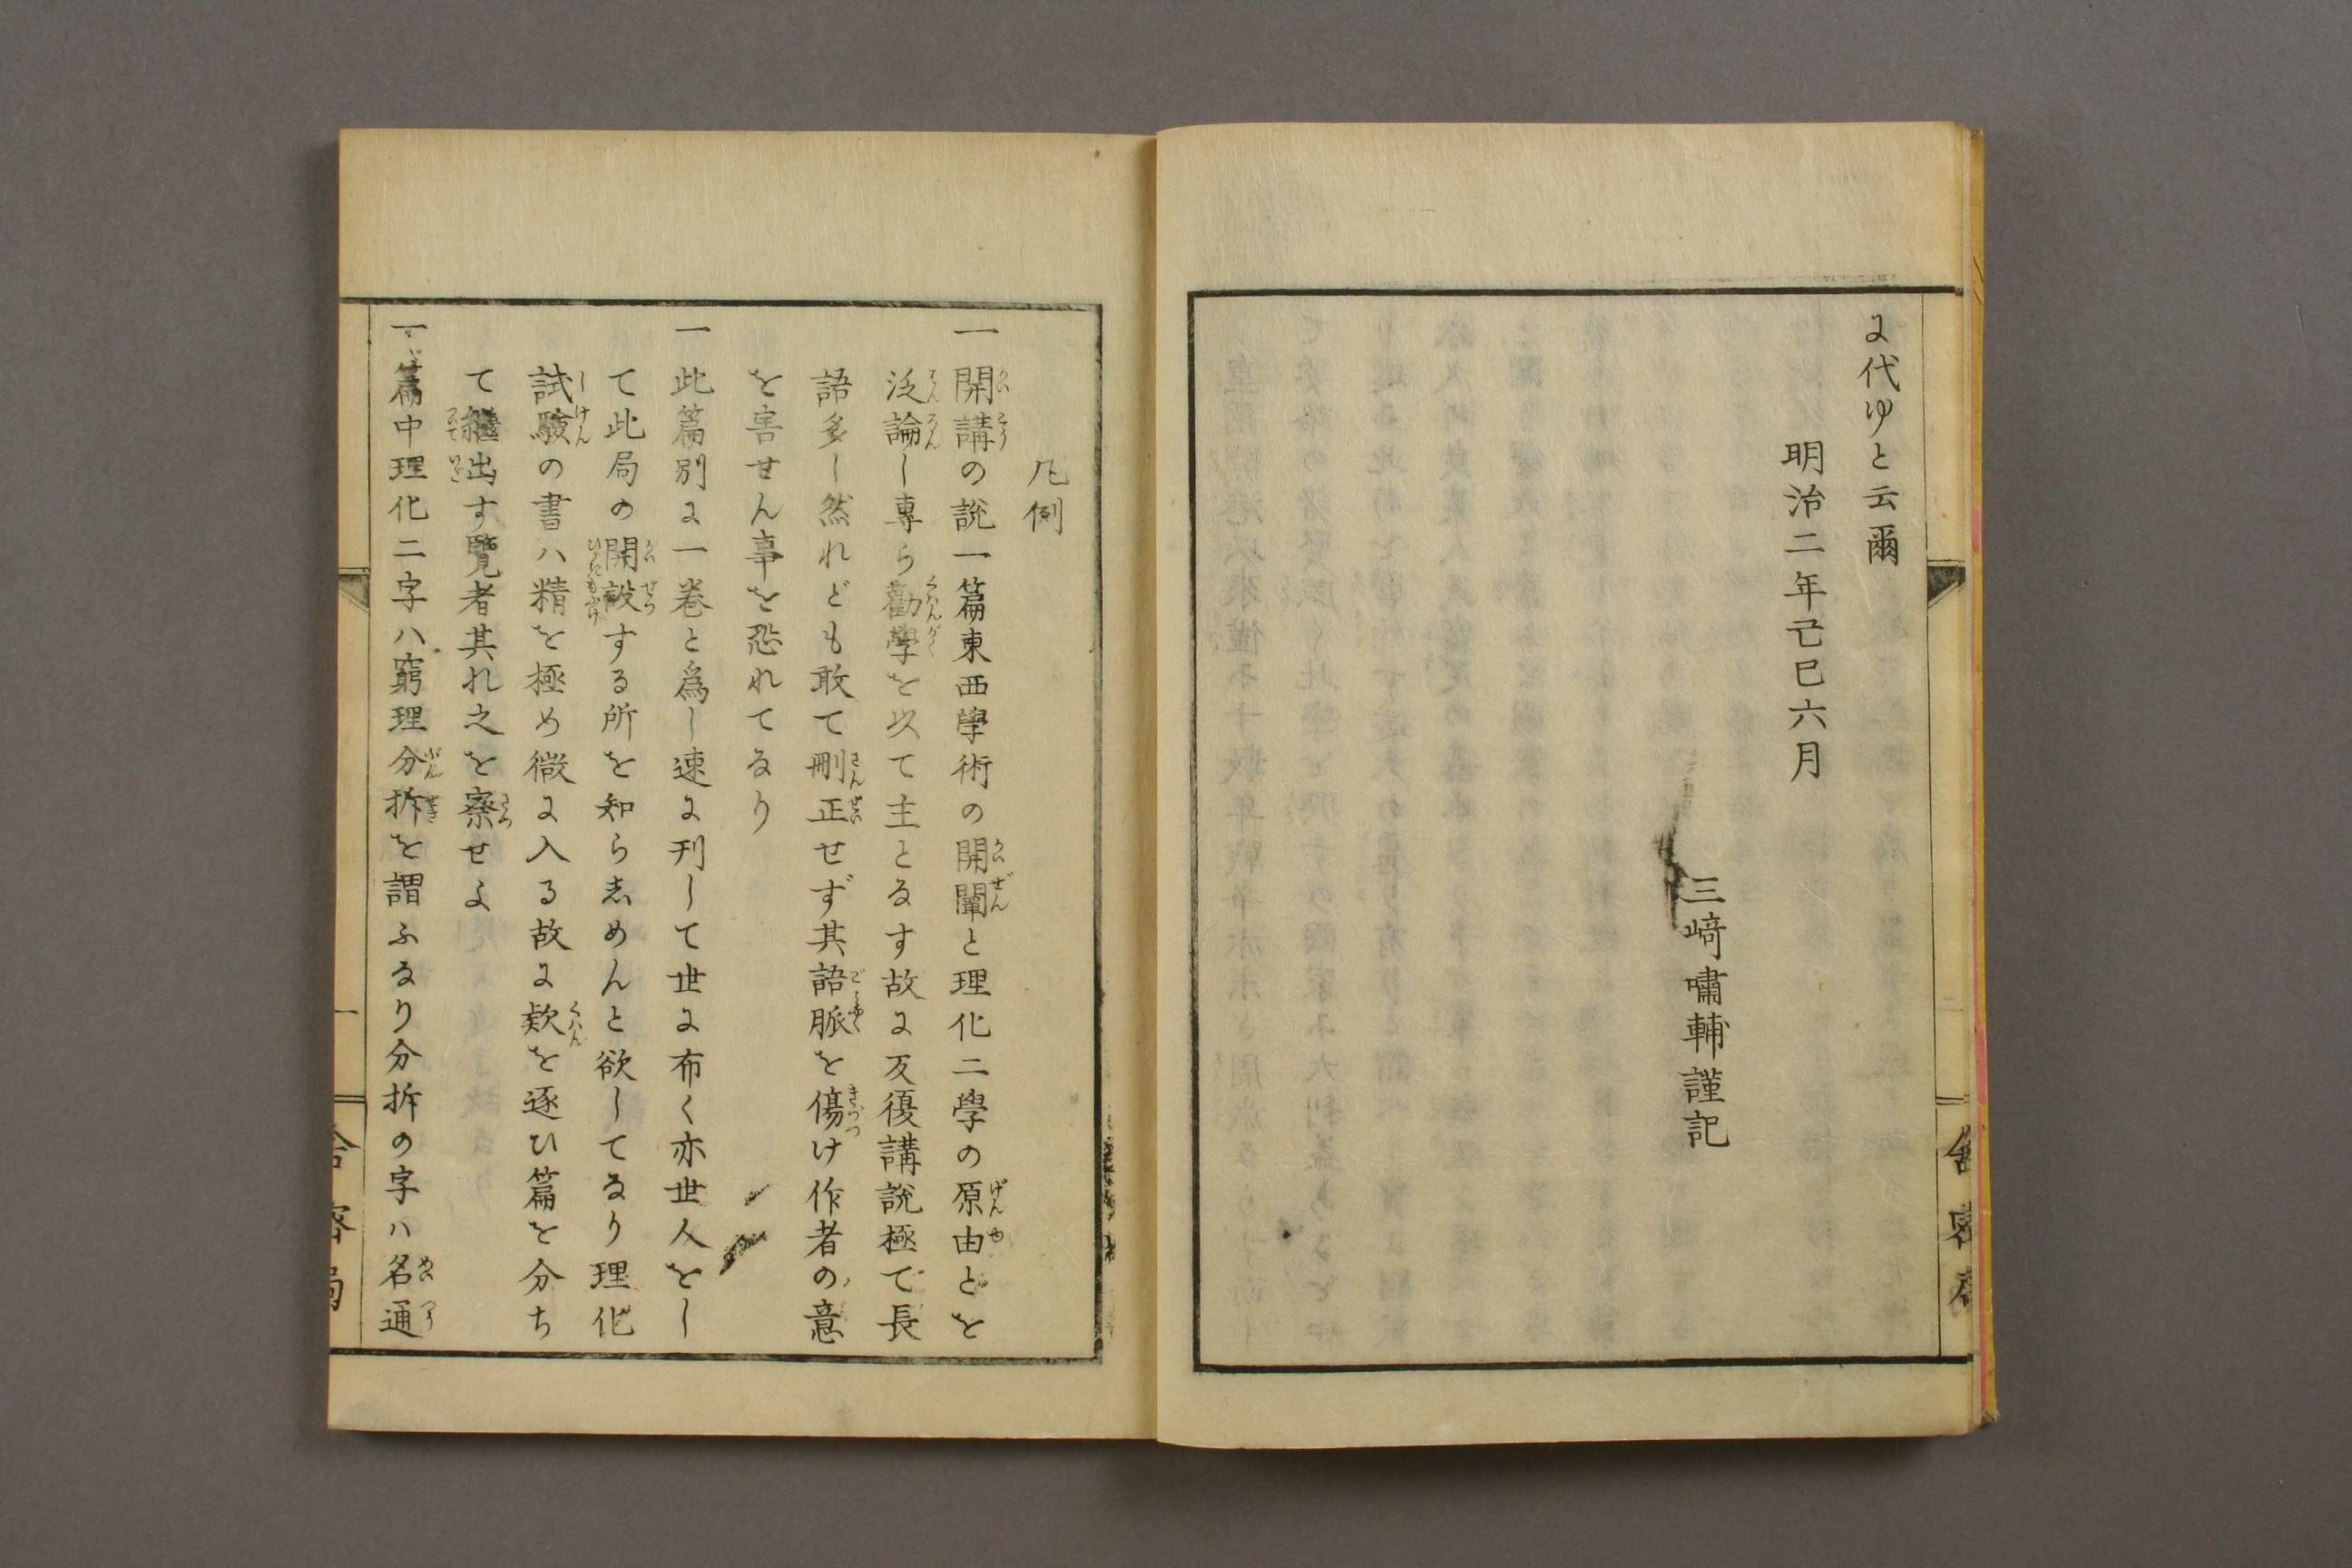 に代ゆと云爾
明治二年己巳六月
三﨑嘯輔謹記
凡例
一開講の說一篇東西學術の開闡と理化二学の原由とを
泛論し專ら勸學を以て主となす故に反復講說極て長
語多し然れども敢て刪正せず其語脈を傷け作者の意
を害せん事を恐れてなり
一此篇別に一卷と爲し速に刊して世に布く亦世人をし
て此局の開設する所を知らしめんと欲してなり理化
試驗の書ハ精を極め微に入る故に欵を逐ひ篇を分ち
て繼出す覽者其れ之を察せよ
一篇中理化二字ハ窮理分拆を謂ふなり分拆の字ハ名通
一
舎密局
舎密局